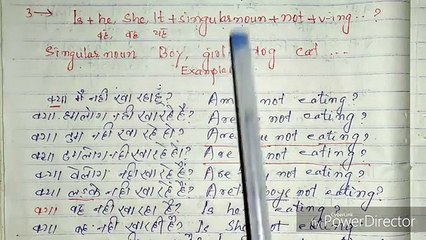 3→ Is + he, She, It + singular noun + not + v-ing..?
वह, वह यह
Singular noun Boy, girl, dog cat ...
Example
क्या मैं नहीं खा रहा हूँ? Am not eating?
क्या हमलोग नहीं खा रहे हैं? Are not eating?
क्या तुम नहीं खा रहे हो? Are you not eating?
क्या तुमलोग नहीं खा रहे हो? Are not eating?
क्या वेलोग नहीं खा रहे हैं? Are not eating?
क्या लड़के नहीं खा रहे हैं? Are boys not eating?
क्या वह नहीं खा रहा है? Is he eating?
क्या वह नहीं खा रही है? Is She not eating
CyberLink
PowerDirector